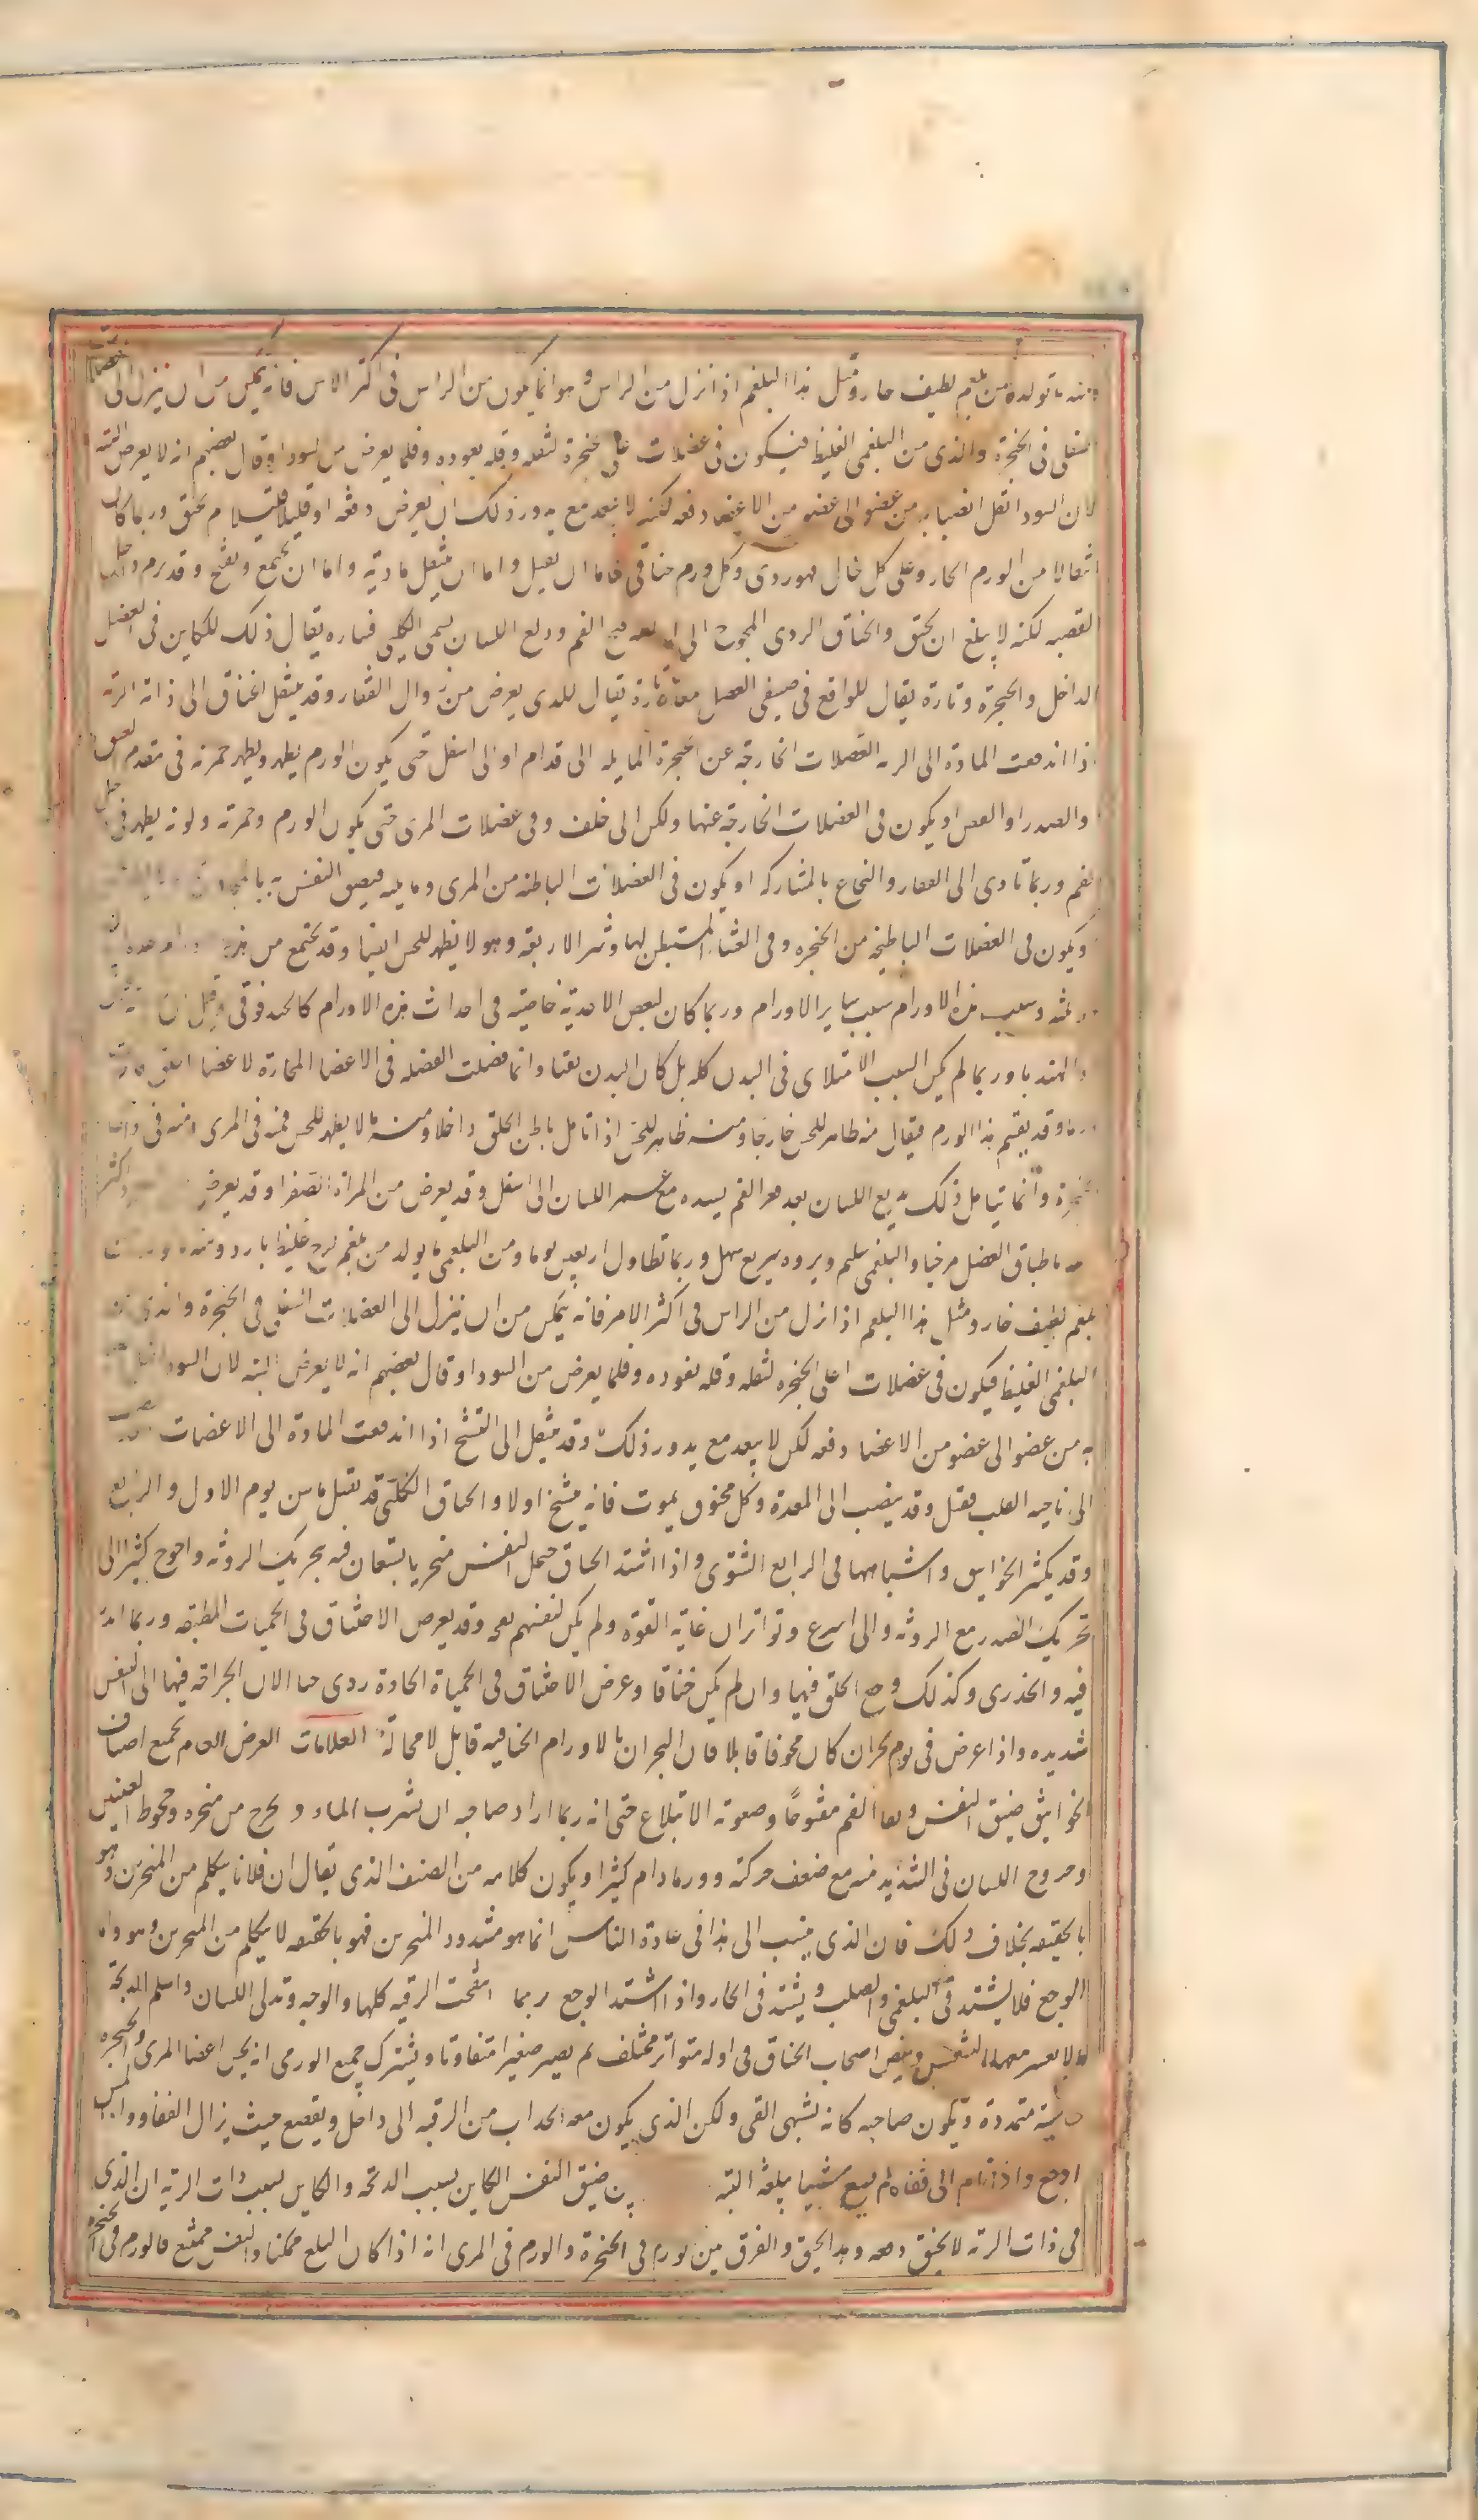 ومنه ما تولده من بلغم لطيف حار وقيل هذا البلغم اذا نزل من الراس وهو انما يكون من الراس فى اكثر الامر فانه يمكن من ان ينزل الى العضلات
السفلى فى الحنجرة والذى من البلغمى الغليظ فيكون فى عضلات على حنجرة لثقله وقله نفوده وقلما يعرض من السودا وقال بعضهم انه لا يعرض البته
لان السودا تقل انصبابه من عضو الى عضو من الاعضا دفعه لكنه لا يبعد مع بدور ذلك ان يعرض دفعه او قليلا قليلا ثم يخنق وربما كان
انتقالا من الورم الحار وعلى كل حال فهو ردى وكل ورم خناقى فاما ان يقتل واما ان ينتقل مادته واما ان يجمع ويفتح وقد يرم داخل
القصبه لكنه لا يبلغ ان يخنق والخناق الردى المحوج الى ادامه فتح الفم ودلع اللسان يسمى الكلبى فتاره يقال ذلك للكاين فى العضل
الداخل والحنجرة وتارة يقال للواقع فى صنفى العضل معا وتارة يقال للذى يعرض من زوال الفقار وقد ينتقل الخناق الى ذات الرئه
اذا اندفعت المادة الى الرئه العضلات الخارجه عن الحنجرة المايله الى قدام او الى اسفل حتى يكون الورم يظهر ويظهر حمرته فى مقدم العنق
والصدر او العنق او يكون فى العضلات الخارجه عنها ولكن الى خلف وفى عضلات المرى حتى يكون الورم وحمرته ولونه يظهر فى داخل
الفم وربما تادى الى الفقار والنخاع بالمشاركه او يكون فى العضلات الباطنه من المرى وما يليه فيضيق النفس به
ويكون فى العضلات الباطنيه من الحنجره وفى الغشا المستبطن لها وشر الاربعه وهو لا يظهر للحس ايضا وقد يجتمع من هذه
وسبب هذه الاورام سبب ساير الاورام وربما كان لبعض الاغذية خاصية فى احداث هذه الاورام كالحندقوقى
والهندبا وربما لم يكن السبب الامتلاى فى البدن كله بل كان البدن نقيا وانما فضلت الفضله فى الاعضا المجاورة لاعضا الحلق
ورما وقد يقسم هذا الورم فيقال منه ظاهر للحس خارجا ومنه ظاهر للحس اذا تامل باطن الحلق داخلا ومنه ما لا يظهر للحس فمنه فى المرى ومنه فى داخل
الحنجرة وانما يتامل ذلك بدلع اللسان بعد فغر الفم بشده مع غمز اللسان الى اسفل وقد يعرض من المراة الصفرا وقد يعرض
ما طباق العضل مرخيا والبلغمى سليم وبروه سريع سهل وربما تطاول اربعين يوما ومن البلغمى ما يولد من بلغم لزج غليظ بارد ومنه
بلغم لطيف حار ومثل هذا البلغم اذا نزل من الراس فى اكثر الامر فانه يمكن من ان ينزل الى العضلات السفلى فى الحنجرة والذى من
البلغمى الغليظ فيكون فى عضلات اعلى الحنجره لثقله وقله نفوده وقلما يعرض من السودا وقال بعضهم انه لا يعرض البته لان السودا
به من عضو الى عضو من الاعضا دفعه لكن لا يبعد مع بدور ذلك وقد ينتقل الى التشنج اذا اندفعت المادة الى الاعضات
الى ناحيه القلب فقتل وقد ينصب الى المعدة وكل مخنوق يموت فانه يتشنج اولا والخناق الكلبى قد يقتل ما بين يوم الاول والرابع
وقد يكثر الخوانيق واشباهها فى الرابع الشتوى واذا اشتد الخناق جعل النفس منخريا يستعان فيه بتحريك الورقه واحوج كثيرا الى
تحريك الصدر مع الورقه والى اسرع وتواتر ان عانه القوة ولم يكن لنفسهم نفعه وقد يعرض الاختناق فى الحميات المطبقه وربما انذر
فيه والجدرى وكذلك وجع الحلق فيها وان لم يكن خناقا وعرض الاختناق فى الحمياة الحادة ردى جدا لان الحراقه فيها الى النفس
شديده واذا عرض فى يوم بحران كان مخوفا قاتلا فان البحران بالاورام الخناقيه قاتل لا محالة العلامات العرض العام لجميع اصناف
الخوانيق ضيق النفس وبقا الفم مفتوحًا وصعوبة الابتلاع حتى انه ربما اراد صاحبه ان يشرب الماء وخرج من منخره وجحوظ العينين
وخروج اللسان فى الشديد منه مع ضعف حركته وربما دام كثيرا ويكون كلامه من الصنف الذى يقال ان فلانا يتكلم من المنخرين وهو
بالحقيقه بخلاف ذلك فان الذى ينسب الى هذا فى عادة الناس انما هو مسدود المنخرين فهو بالحقيقه لا يتكلم من المنخرين وهو واما
الوجع فلا يشتد فى البلغمى والصلب ويشتد فى الحار واذا اشتد الوجع ربما انتفخت الرقبه كلها والوجه وتدلى اللسان واسلم الذبحة
ما لا يعسر معها التنفس ونبض اصحاب الخناق فى اوله متواتر مختلف ثم يصير صغيرا متفاوتا ويشترك جميع الورمى انه يحس اعضا المرى والحنجره
جاسية متمددة ويكون صاحبه كانه يشتهى القى ولكن الذى يكون معه انجذاب من الرقبه الى داخل وتقصع حيث يزال الفقار واذا لمس
اوجع واذا نام الى قفاه لم يسع شيا يبلعه البته بين ضيق النفس الكاين بسبب الذبحه والكاين بسبب ذات الرئه ان الذى
فى ذات الرئه لا يخنق دفعه وهذا يخنق والفرق بين الورم فى الحنجرة والورم فى المرى انه اذا كان البلع ممكنا والنفس ممتنع فالورم فى الحنجرة